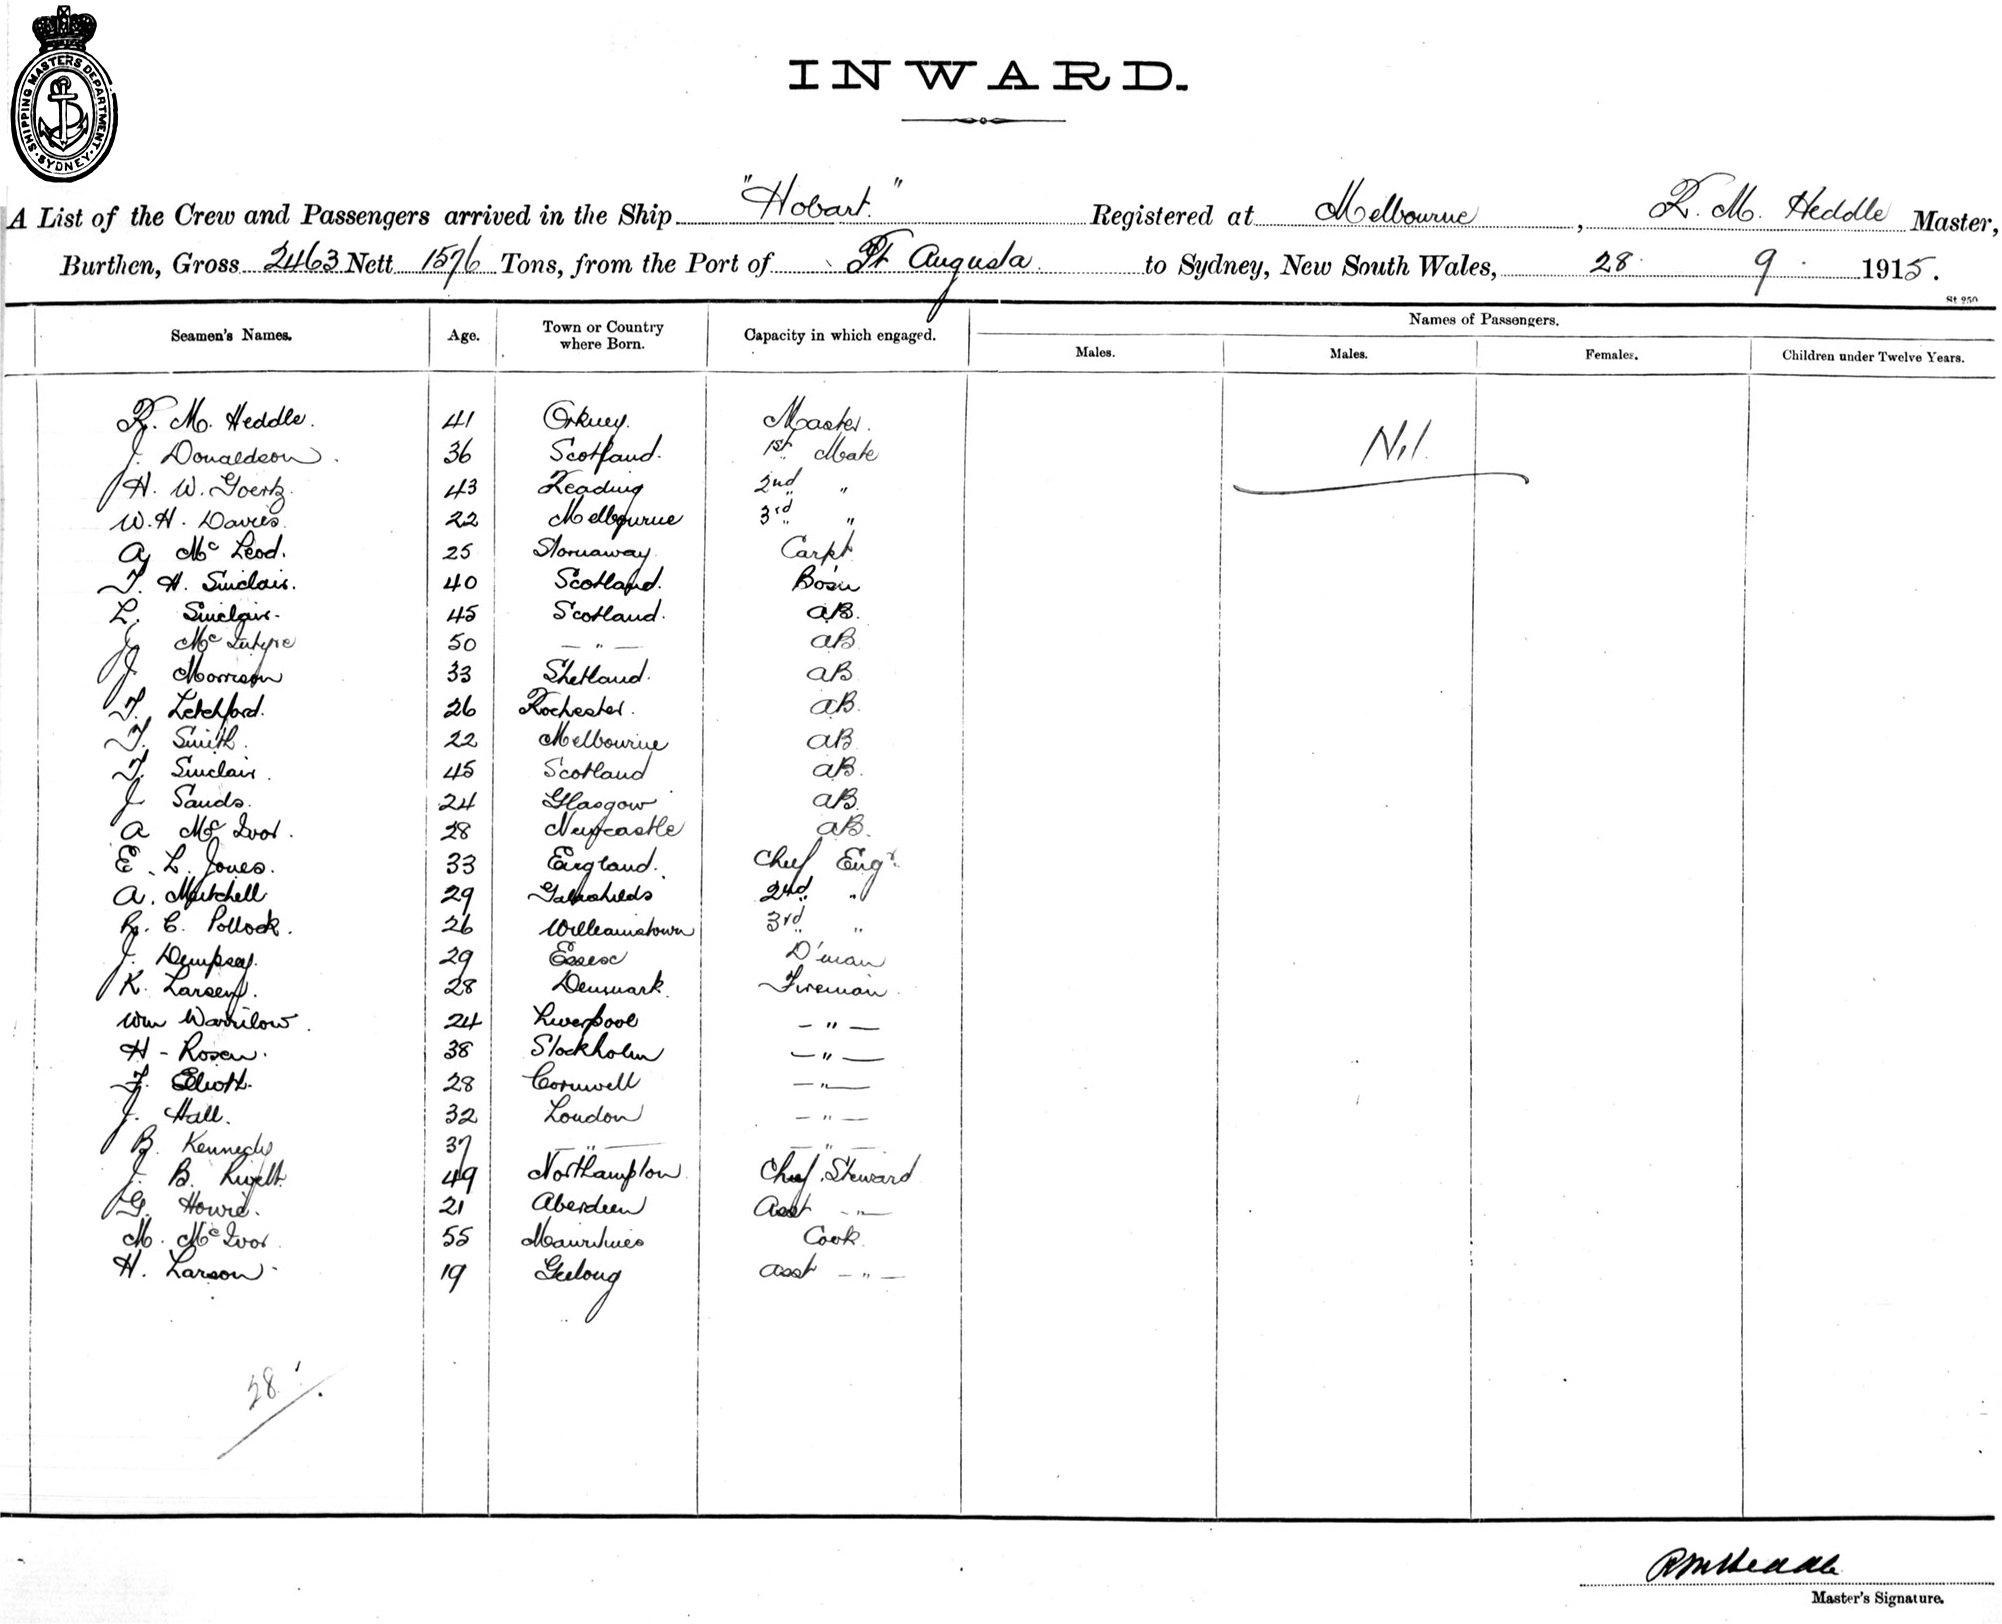 SHIPPING MASTERS DEPARTMENT. SYDNEY
INWARD.
A List of the Crew and Passengers arrived in the Ship "Hobart" Registered at Melbourne, R. M. Heddle Master,
Burthen, Gross 2463 Nett 1576 Tons, from the Port of Pt Augusta to Sydney, New South Wales, 28 9 1915.
St 250
Seamen's Names. Age. Town or Country where Born. Capacity in which engaged. Names of Passengers.
Males. Males. Females. Children under Twelve Years.
R. M. Heddle. 41 Orkney. Master.
J. Donaldson. 36 Scotland. 1st Mate
H. W. Goertz. 43 Reading 2nd "
W. H. Davies. 22 Melbourne 3rd "
A Mc Leod. 25 Stornaway. Carpt
T. H. Sinclair. 40 Scotland. Bo'sn
L. Sinclair. 45 Scotland. AB.
J. Mc Intyre 50 — " — AB
J. Morrison 33 Shetland. AB
T. Letchford. 26 Rochester. AB.
T. Smith. 22 Melbourne AB
T. Sinclair. 45 Scotland AB.
J Sands. 24 Glasgow AB
A Mc Ivor. 28 Newcastle AB.
E. L. Jones. 33 England. Chief Engr.
A. Mitchell 29 Galashields 2nd "
R. C. Pollock. 26 Williamstown 3rd "
J. Dempsey. 29 Essex D'man
K. Larsen. 28 Denmark. Fireman
Wm Warrilow. 24 Liverpool — " —
H - Rosen. 38 Stockholm — " —
F. Eliott. 28 Cornwell — " —
J. Hall. 32 London — " —
B. Kennedy 37 — " — — " —
J. B. 49 Northampton. Chief Steward
G. Howie. 21 Aberdeen Asst — " —
M. Mc Ivor. 55 Mauritius Cook.
H. Larson. 19 Geelong Asst — " —
Nil.
28
R M Heddle
Master's Signature.